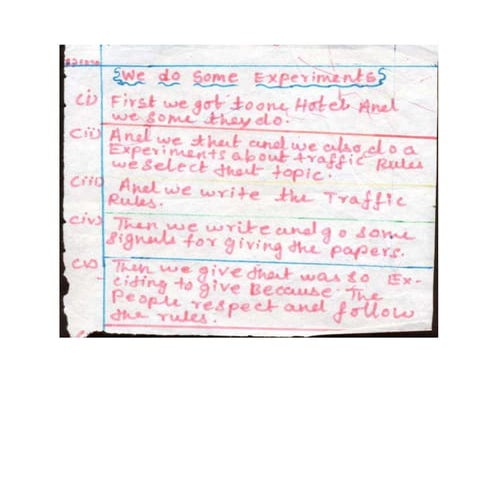 We do Some Experiments
(i) First we got to one Hotel And
we some they do.
(ii) And we that and we also do a
Experiments about traffic Rules
we select that topic.
(iii) And we write the Traffic
Rules.
(iv) Then we write and go some
Signals for giving the papers.
(v) Then we give that was so Ex-
citing to give Because. The
People respect and follow
the rules.